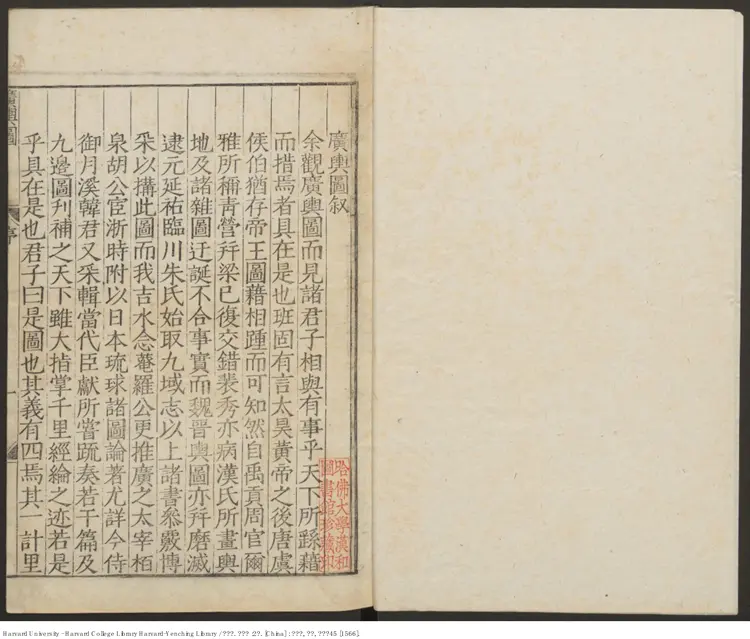 廣輿圖叙
余觀廣輿圖而見諸君子相與有事乎天下所繇藉
而措焉者具在是也班固有言太昊黃帝之後唐虞
侯伯猶存帝王圖藉相踵而可知然自禹貢周官爾
雅所稱青營幷梁已復交錯裴秀亦病漢氏所畫輿
地及諸雜圖迂誕不合事實而魏晋輿圖亦幷磨滅
逮元延祐臨川朱氏始取九域志以上諸書叅覈博
采以搆此圖而我吉水念菴羅公更推廣之太宰栢
泉胡公宦浙時附以日本琉球諸圖論著尤詳今侍
御月溪韓君又采輯當代臣獻所嘗疏奏若干篇及
九邊圖刋補之天下雖大指掌千里經綸之迹若是
乎具在是也君子曰是圖也其義有四焉其一計里
廣輿圖
序
一
哈佛大學漢和
圖書館珍藏印
Harvard University - Harvard College Library Harvard-Yenching Library / ???. ??? :2?. [China] : ???, ??, ???45 [1566].